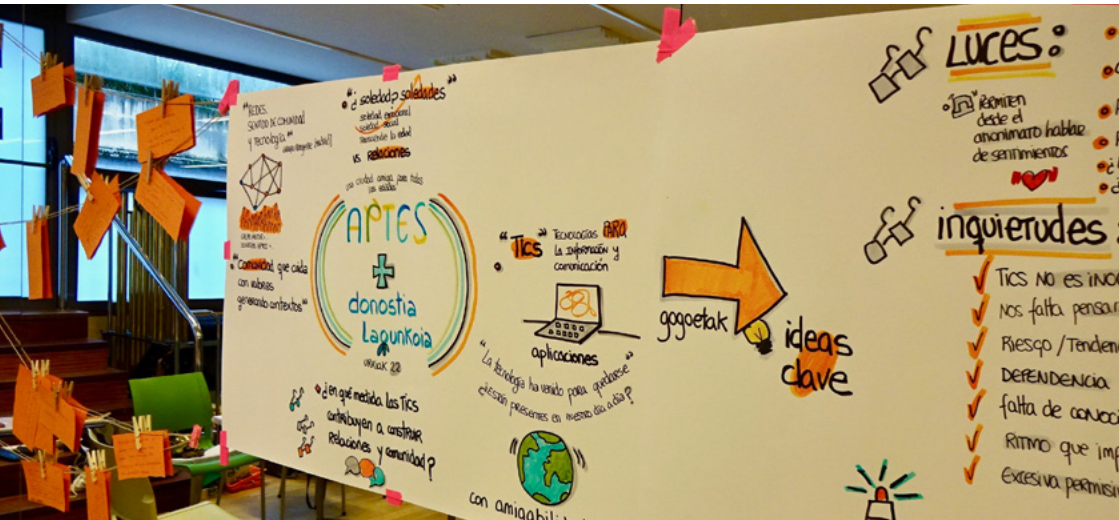 "REDES,
SENTIDO DE COMUNIDAD
y Tecnología"
"Comunidad que cuida
con valores
generando contextos"
"¿soledad? soledades"
soledad emocional
soledad social
vs Relaciones
una ciudad amiga para todas
las edades
APTES
+
donostia
Lagunkoia
URRIAK 22
¿en qué medida las Tics
contribuyen a construir
Relaciones y comunidad?
"Tics" TECNOLOGÍAS PARA
La INFORMACIÓN y
comunicación
aplicaciones
"La tecnología ha venido para quedarse"
¿ESTÁN PRESENTES EN NUESTRO DÍA A DÍA?
con amigabilid
gogoetak
ideas
clave
LUCES:
PERMITEN
desde el
anonimato hablar
de sentimientos
inquietudes:
TICS NO ES INO
Nos falta pensar
Riesgo / Tenden
DEPENDENCIA
falta de conoc
RITMO que imp
Excesiva permisi